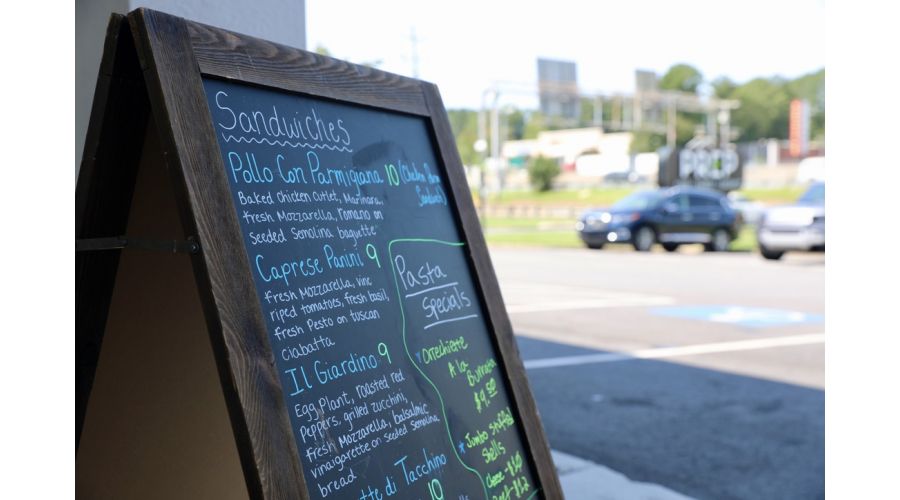 Sandwiches
Pollo Con Parmigiana 10 (Chicken Parm
Sandwich)
Baked Chicken Cutlet, Marinara,
fresh Mozzarella, romano on
seeded Semolina baguette
Caprese Panini 9
fresh Mozzarella, vine
riped tomatoes, fresh basil,
fresh Pesto on tuscan
ciabatta
Il Giardino 9
Egg Plant, roasted red
Peppers, grilled zucchini,
fresh Mozzarella, balsalmic
vinaigarette on seeded Semolina
bread.
di Tacchino
10
Pasta
Specials
Orrechiette
A la
Burrata
$9.50
Jumbo stuffed
Shells
Cheese - $10
$12